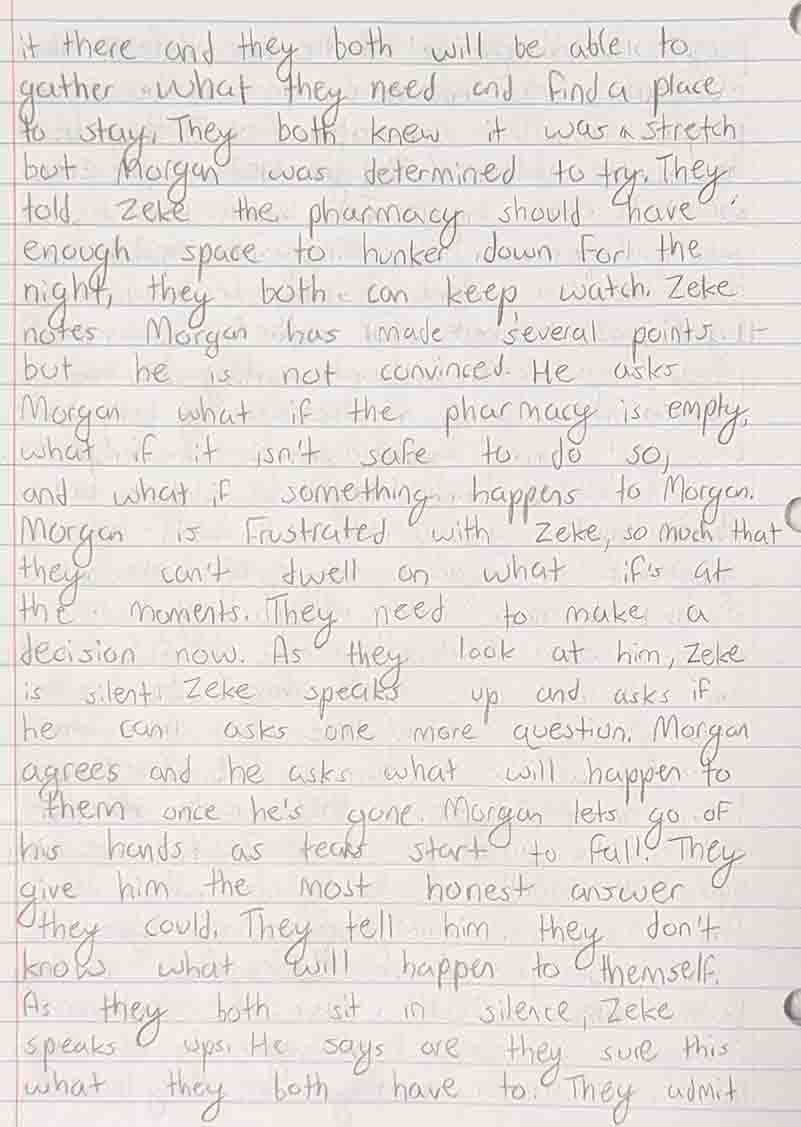 it there and they both will be able to
gather what they need and find a place
to stay. They both knew it was a stretch
but Morgan was determined to try. They
told Zeke the pharmacy should have
enough space to hunker down for the
night, they both can keep watch. Zeke
notes Morgan has made several points
but he is not convinced. He asks
Morgan what if the pharmacy is empty,
what if it isn't safe to do so,
and what if something happens to Morgan.
Morgan is frustrated with Zeke, so much that
they can't dwell on what if's at
the moments. They need to make a
decision now. As they look at him, Zeke
is silent. Zeke speaks up and asks if
he can asks one more question. Morgan
agrees and he asks what will happen to
them once he's gone. Morgan lets go of
his hands as tears start to fall. They
give him the most honest answer
they could. They tell him they don't
know what will happen to themself.
As they both sit in silence, Zeke
speaks ups. He says are they sure this
what they both have to. They admit